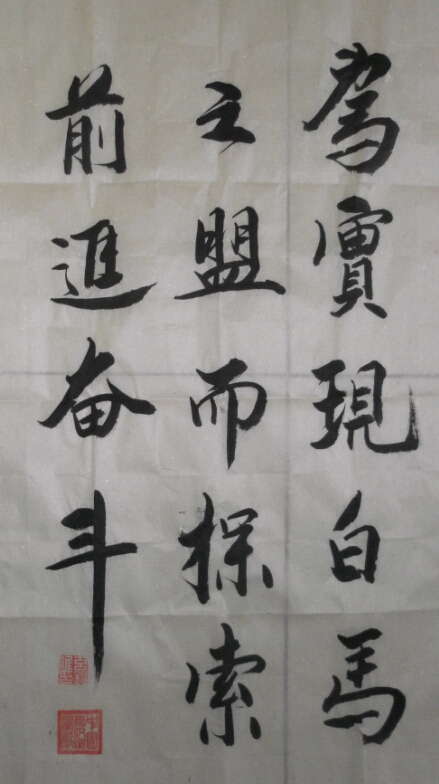 為實現白馬
之盟而探索
前進奋斗